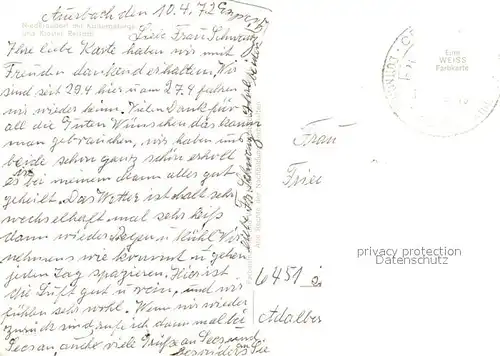 Auerbach den 10.4.72
Niederaudorf mit Kaisergebirge
und Kloster Reisach
Liebe Frau Schwarz
Ihre liebe Karte haben wir mit
Freuden dankend erhalten. Wir
sind seit 29.4 hier u am 27.4 fahren
wir wieder heim. Vielen Dank für
all die Guten Wünschen das kann
man gebrauchen, wir haben uns
beide schon ganz schön erholt
es ist bei meinem Mann alles gut
geheilt. Das Wetter ist halt sehr
wechselhaft mal sehr heiß
dann wieder Regen u kühl Wir
nehmens wie kommt u gehen
jeden Tag spazieren. Hier ist
die Luft gut u rein, und wir
fühlen sehr wohl. Wenn wir wieder
zurück sind, rufe ich dann mal bei
an, auch viele Grüße an
besonders Sie
Eine
WEISS
Farbkarte
Frau
Frie
6451
Adalber
privacy protection
Datenschutz